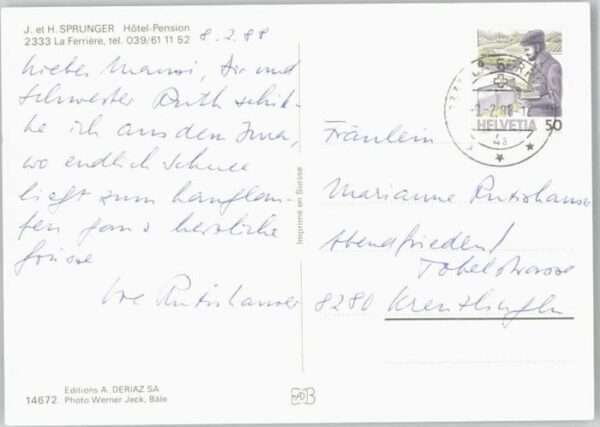 J. et H. SPRUNGER Hôtel-Pension
2333 La Ferrière, tel. 039/61 11 52
8.2.88
Liebes Manni, Dir und
Schwester Ruth schik-
ke ich aus dem Jura,
wo endlich Schnee
liegt zum Langlau-
fen ganz herzliche
Grüsse
Rutishauser
Imprimé en Suisse
HELVETIA 50
Fräulein
Marianne Rutishauser
Abendfrieden
Tobelstrasse
8280 Kreuzlingen
Editions A. DERIAZ SA
14672 Photo Werner Jeck, Bâle